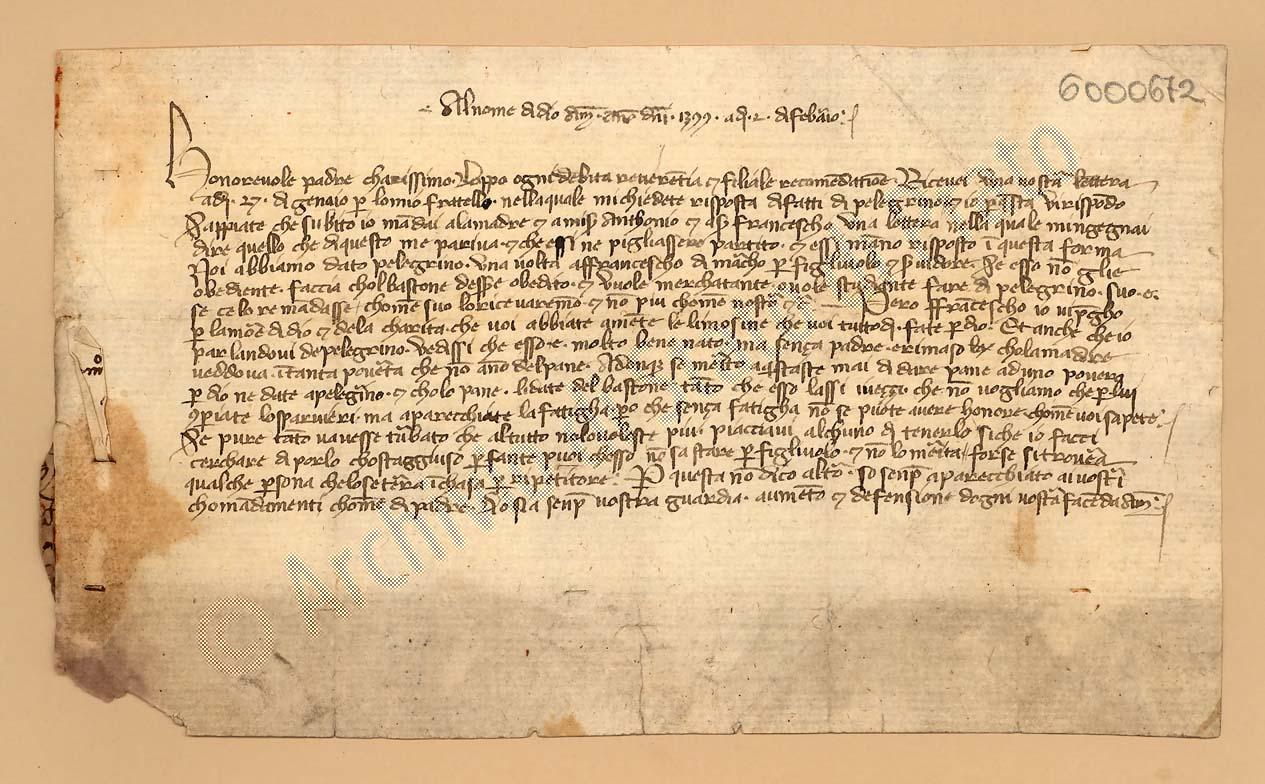 6000672
Al nome di dio am̄. āno dn̄i. 1399. adj. 2. di febraio:
Honorevole padre charissimo. Doppo ogni debita reverētia et filiale recomēdatiōe. Ricevei una vostra lettera
adj. 27. di genaio p lo mio fratello. nella quale mi chiedete risposta di fatti di pelegrino. et io p q̄sta vi rispōdo
Sappiate che subito io mādai ala madre et a mis̄ Anthonio et a s̄ francescho una lettera nella quale mingegnai
dire quello che di questo me pariva. et che essi ne pigliassero partito. et essi māno risposto ī questa forma
Noi abbiamo dato pelegrino. una volta affrancescho di marcho p figliuolo et s̄vidore. Se esso nō glie
obediente. faccia chol bastone desse obedito. et vuole merchatante o vole studiante fare di pelegrino. suo. e.
se celo remādasse, chome suo lo ricevaremo. et nō piu chome nostro
Pero ffrancescho io vi p̄gho
p lamore di dio et dela charita. che voi abbiate a mēte le limosine che voi tuttodi. fate p dio. Et anche che io
parlandovi de pelegrino. vedissi che esso. e. molto bene nato, ma sença padre. e rimaso chola madre
veddova. ī tanta povertà che nō āno del pane. Adonq se mērito aq̄staste mai di dare pane ad uno povero
p dio ne date a pelegrino. et cholo pane. lidate del bastone. tāto che esso lassi i veççi che nō vogliamo che p lui
cōpriate lo sparvieri. ma aparecchiate la fatigha. po che sença fatigha nō se puote avere honore. chome voi sapete:
Se pure tāto vavesse turbato che al tutto nolo voleste piu. piacciavi alchuno di tenerlo si che io facci
cerchare di porlo chostaggiuso p fante p̄voi chesso nō sa stare p figliuolo. et nō lo merita. forse si trovera
qualche p̄sona che lo seterra ī chasa p ripetitore. P questa nō dico altro. so senp̄ aparecchiato ai vostri
chomādamenti chome di padre. Dio sia senp̄ vostra guardia. aumēto et defensione dogni vostra facēda am̄:
© Archivio di Stato